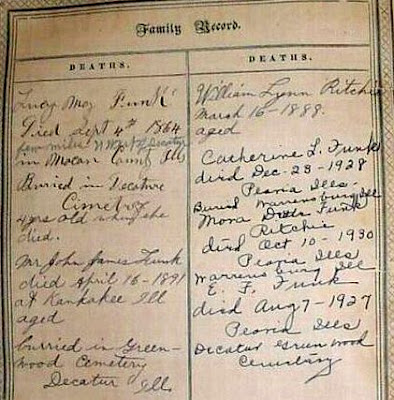 Family Record.
DEATHS.
Lucy May Funk
Died Sept 4th 1864
few miles N West of Decatur
in Macon County Ills
Burried in Decature
Cimetrey
4 yrs old when she
died.
Mr John James Funk
died April 16-1891
at Kankakee Ill
aged
burried in Green-
wood Cemetery
Decatur Ill
DEATHS.
William Lynn Ritchie
March 16-1888.
aged
Catherine L. Funk
died Dec-23-1928
Peoria Ills.
Buried Warrensburg Ill
Mona Funk
Ritchie
died Oct 10-1930
Peoria Ills
Warrensburg Ill
E. F. Funk
died Aug 7-1927
Peoria Ills
Decatur Greenwood
Cemetary